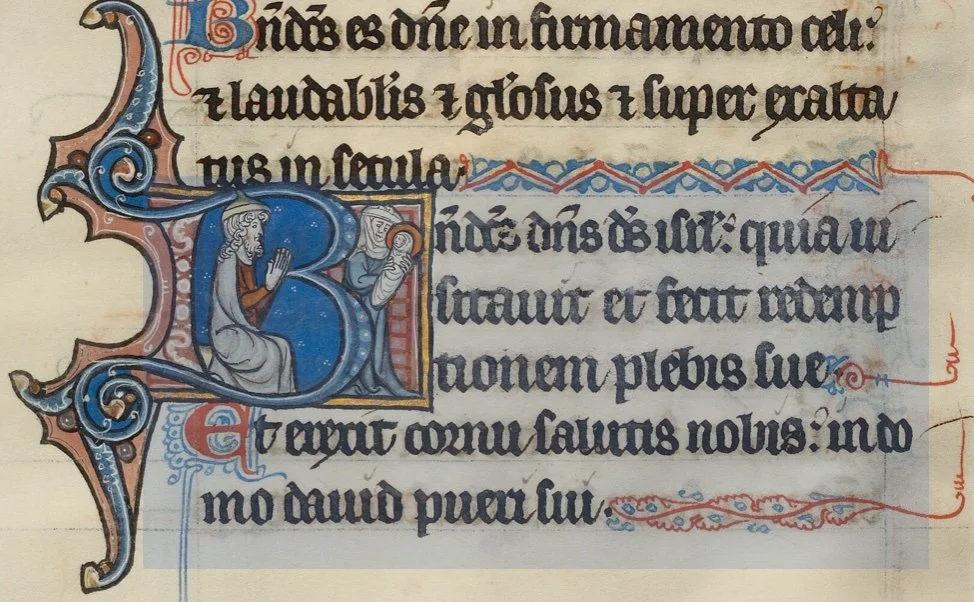 Bñdc̃s es dñe in firmamento celi:
⁊ laudabl'is ⁊ gl'osus ⁊ super exalta
tus in secula.
Bñdc̃s dñs ds̃ isrl̃: quia ui
sitauit et fecit redemp
tionem plebis sue
Et erexit cornu salutis nobis: in do
mo dauid pueri sui.